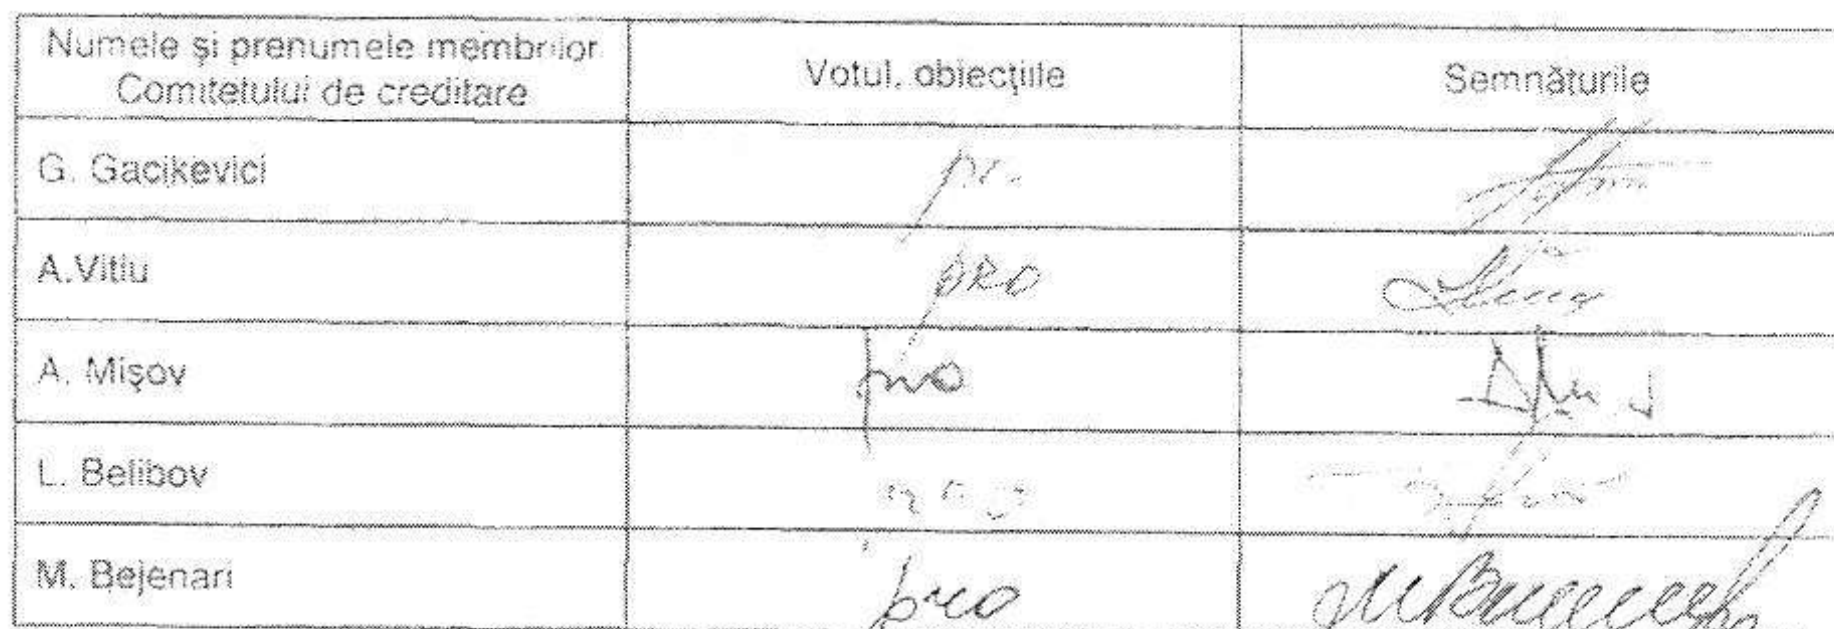 Numele și prenumele membrilor
Comitetului de creditare
Votul, obiecţiile
Semnăturile
G. Gacikevici
A.Vitiu
pro
A. Mişov
pro
L. Belibov
M. Bejenari
pro